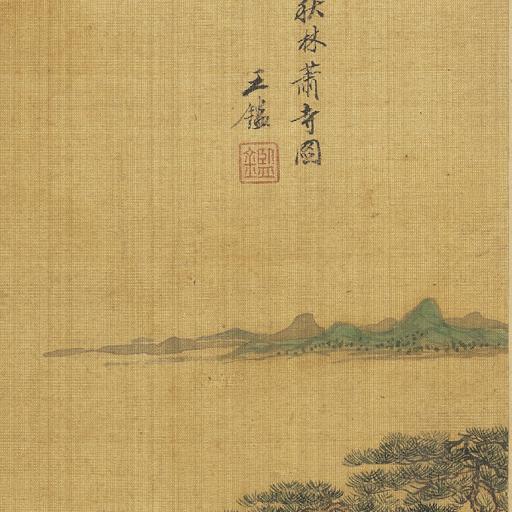 秋林蕭寺圖
王鑑
鑑